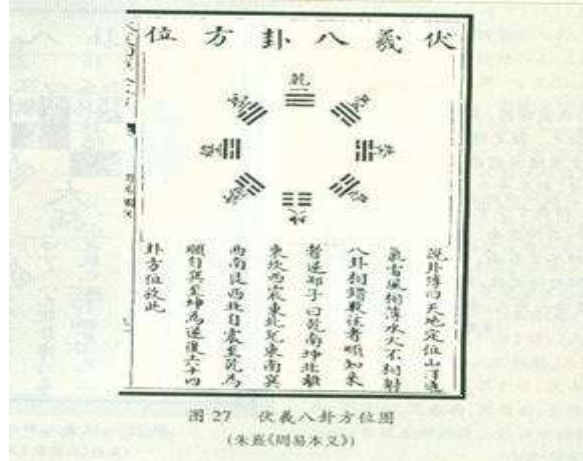 伏羲八卦方位
乾
說卦傳曰天地定位山澤通
氣雷風相薄水火不相射
八卦相錯數往者順知來
者逆邵子曰乾南坤北離
東坎西震東北兌東南巽
西南艮西北自震至乾為
順自巽至坤為逆後六十四
卦方位放此
图 27 伏羲八卦方位图
(朱熹《周易本义》)